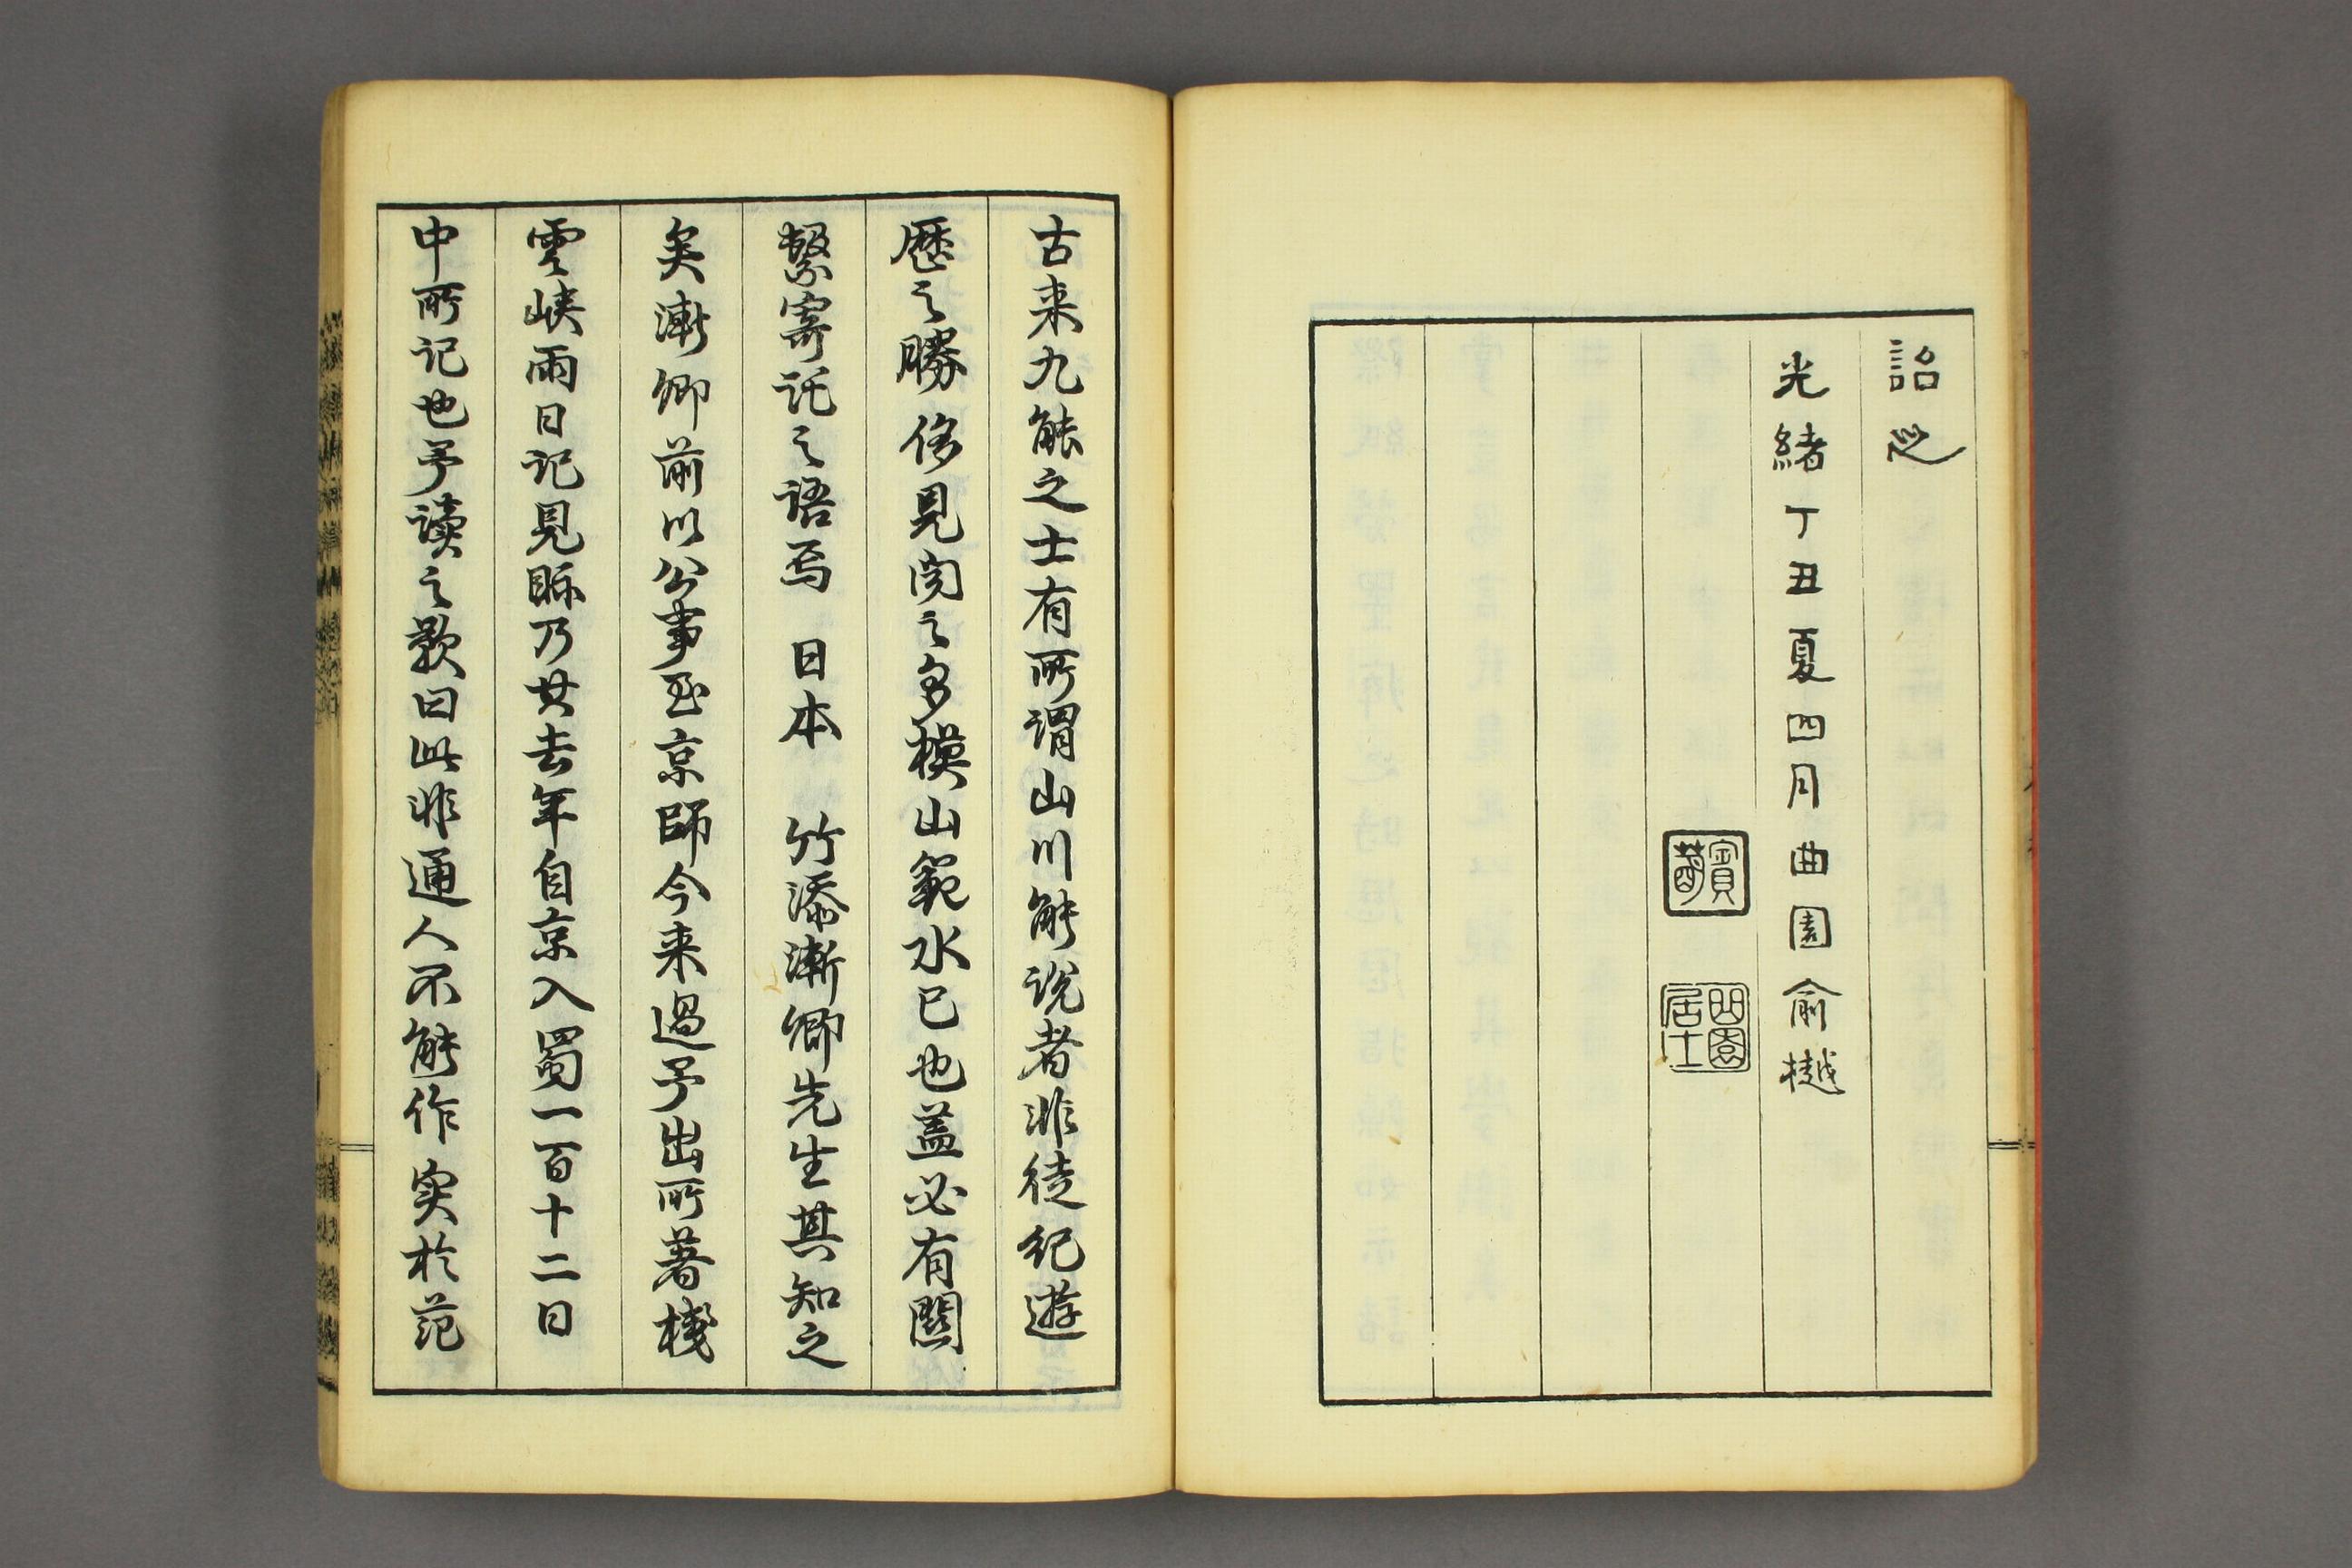 詒之
光緒丁丑夏四月曲園俞樾
曲園居士
古来九能之士有所謂山川能说者非徒纪遊
歷之勝侈見闻之多模山範水已也盖必有關
繫寄託之语焉 日本 竹添漸卿先生其知之
矣漸卿前以公事至京師今来過予出所著棧
雲峡雨日记見眎乃其去年自京入蜀一百十二日
中所记也予读之歎曰此非通人不能作实於范